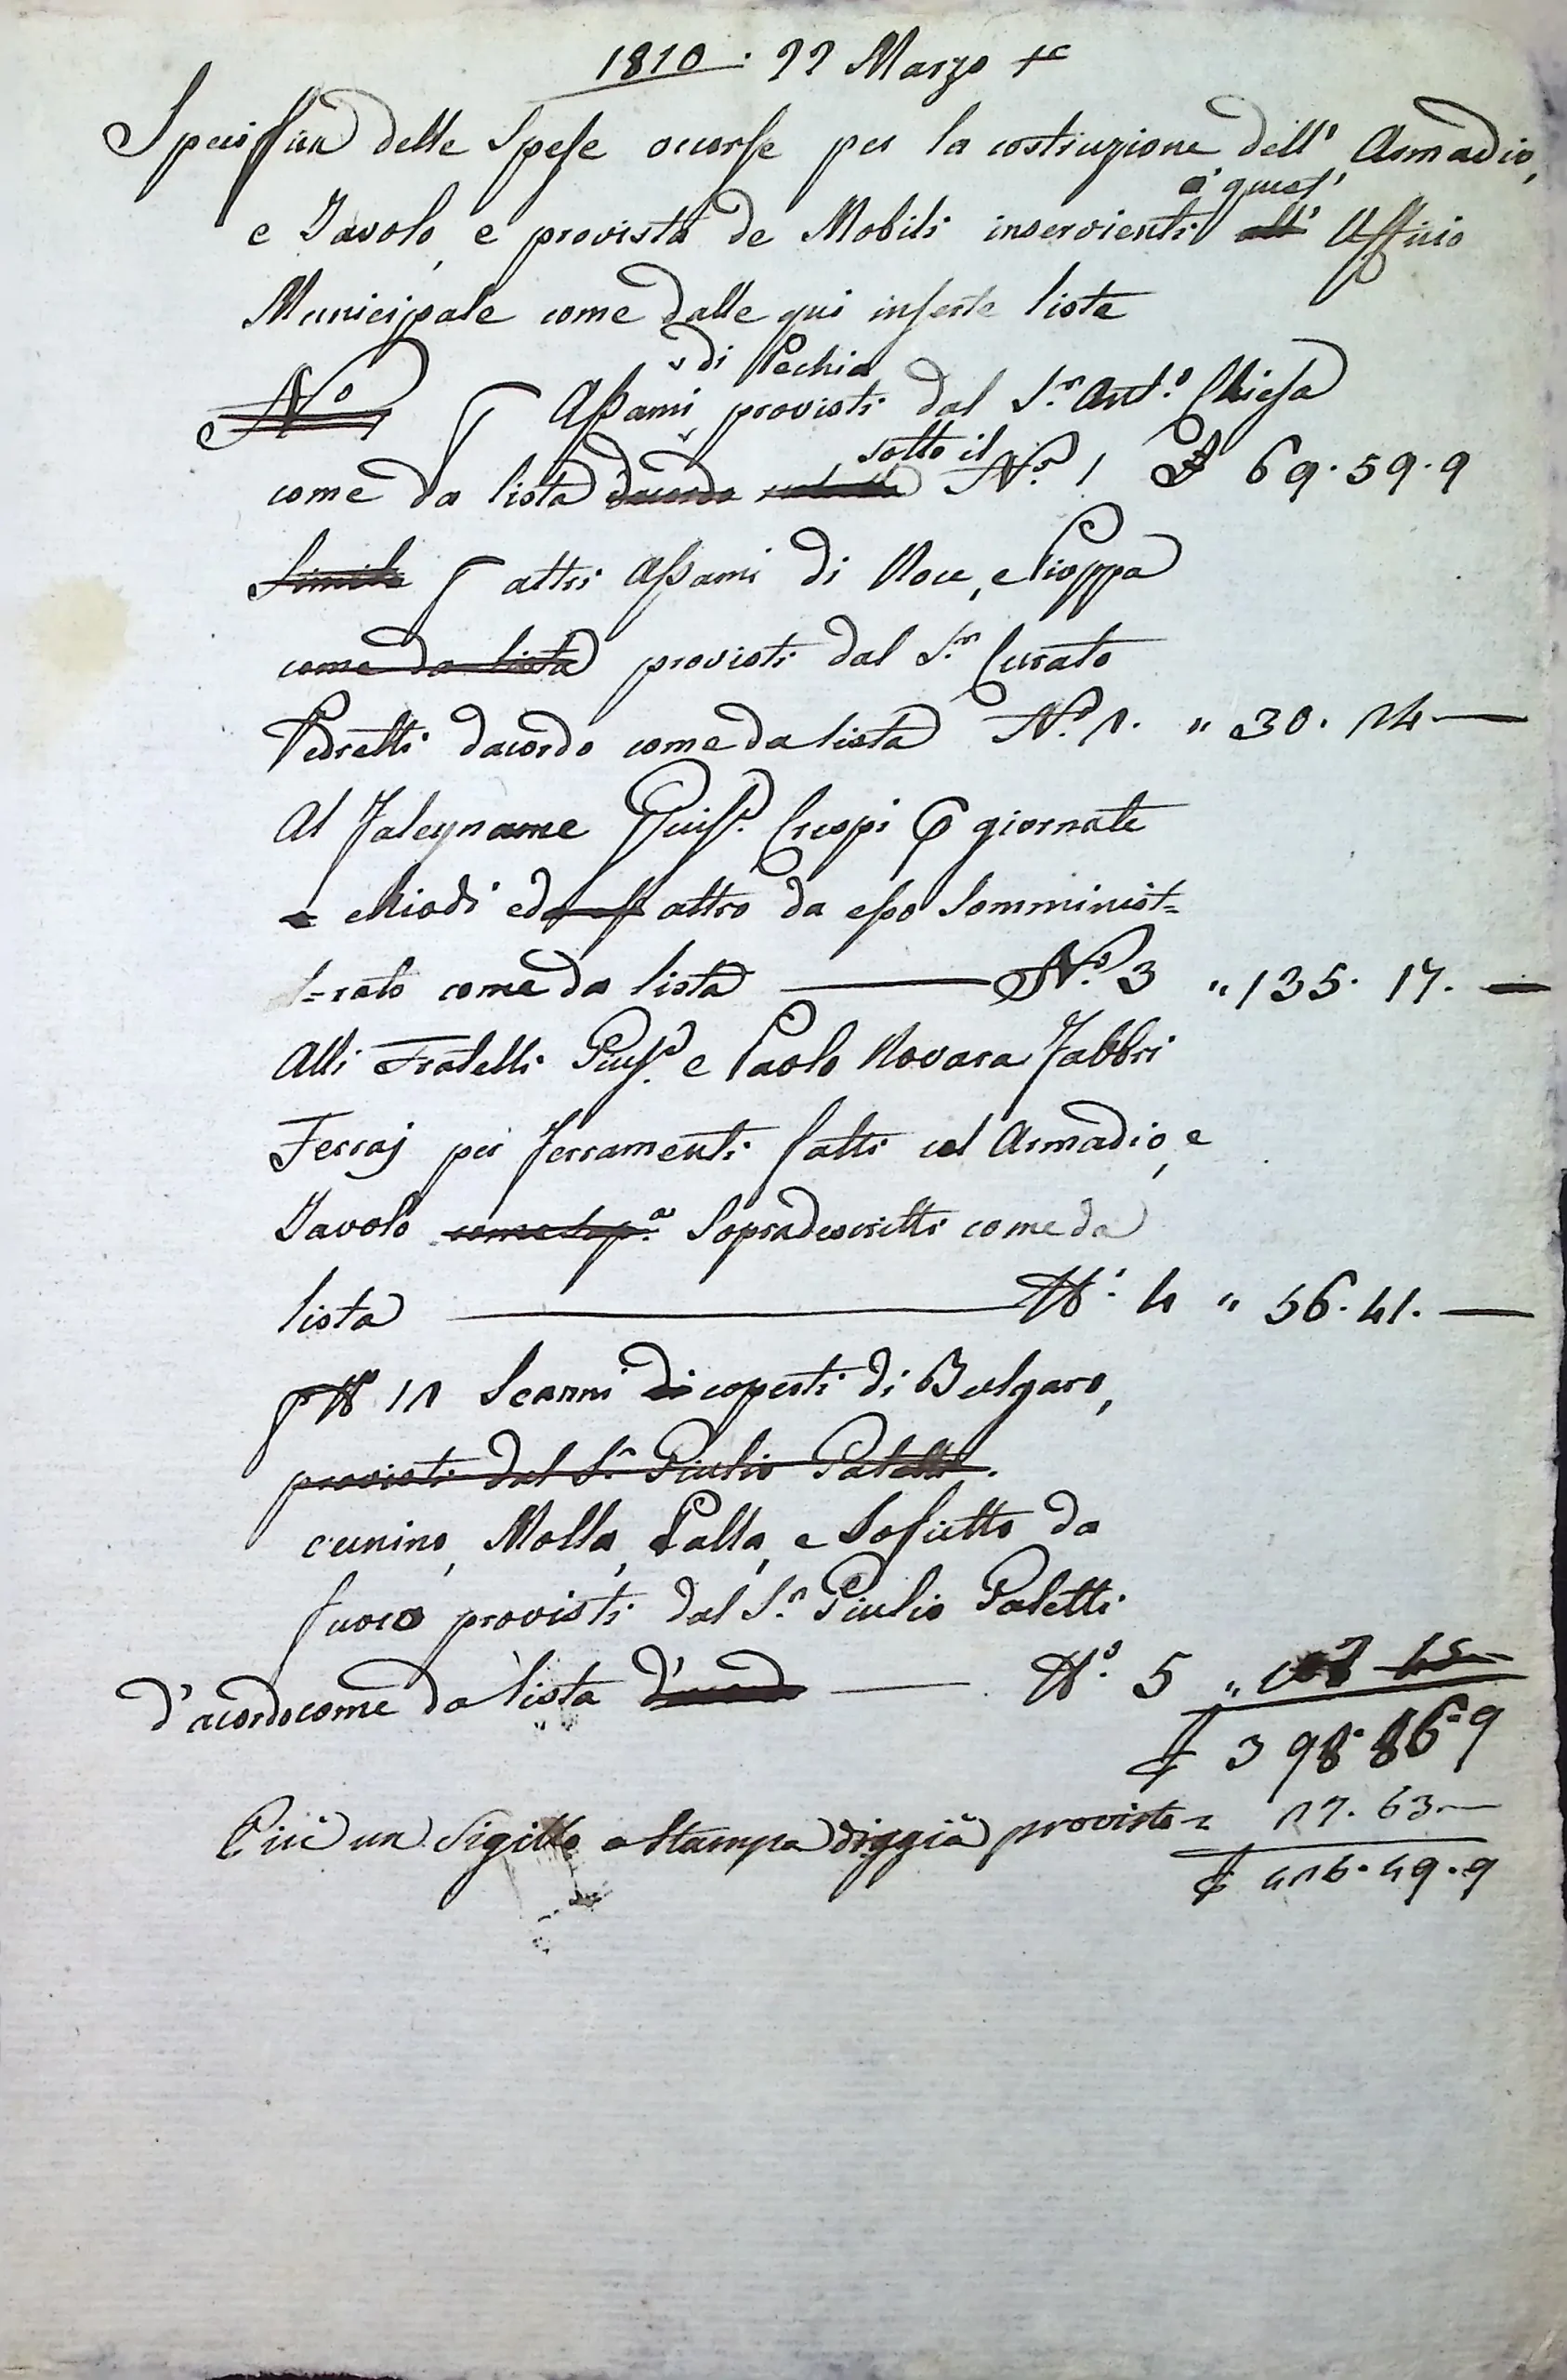 1810. 22 Marzo
Speciffica delle Spese occorse per la costruzione dell' Armadio,
a' quest'
e Tavolo, e provista de Mobili inservienti all' Ufficio
Municipale come dalle qui inserte liste
di Pechia
No per Assami provisti dal S.r Ant.o Chiesa
sotto il
come da lista dacordo N.o 1 £ 69.59.9
Simile per altri Assami di Noce, e Pioppa
come da lista provisti dal S.r Curato
Pedretti dacordo come da lista N.o 2. " 30. 24 —
Al Falegname Giusp.e Crespi per giornate
e chiodi ed altro da esso Somminist=
t=rato come da lista — N.o 3 " 135. 17. —
Alli Fratelli Gius.e e Paolo Novara Fabbri
Ferraj per ferramenti fatti al Armadio, e
Tavolo come sop.a Sopradescritti come da
lista — N.o 4 " 56. 41. —
per N.o 12 Scanni di coperti di Bulgaro,
provisti dal S.r Giulio Galetti.
cunino, Molla, Palla, e Sofietto da
fuoco provisti dal S.r Giulio Galetti
d'acordo come da lista d'acordo — N.o 5 "
£ 398.86.9
Più un Sigillo a Stampa diggià provisto = 27. 63 —
£ 426.49.9